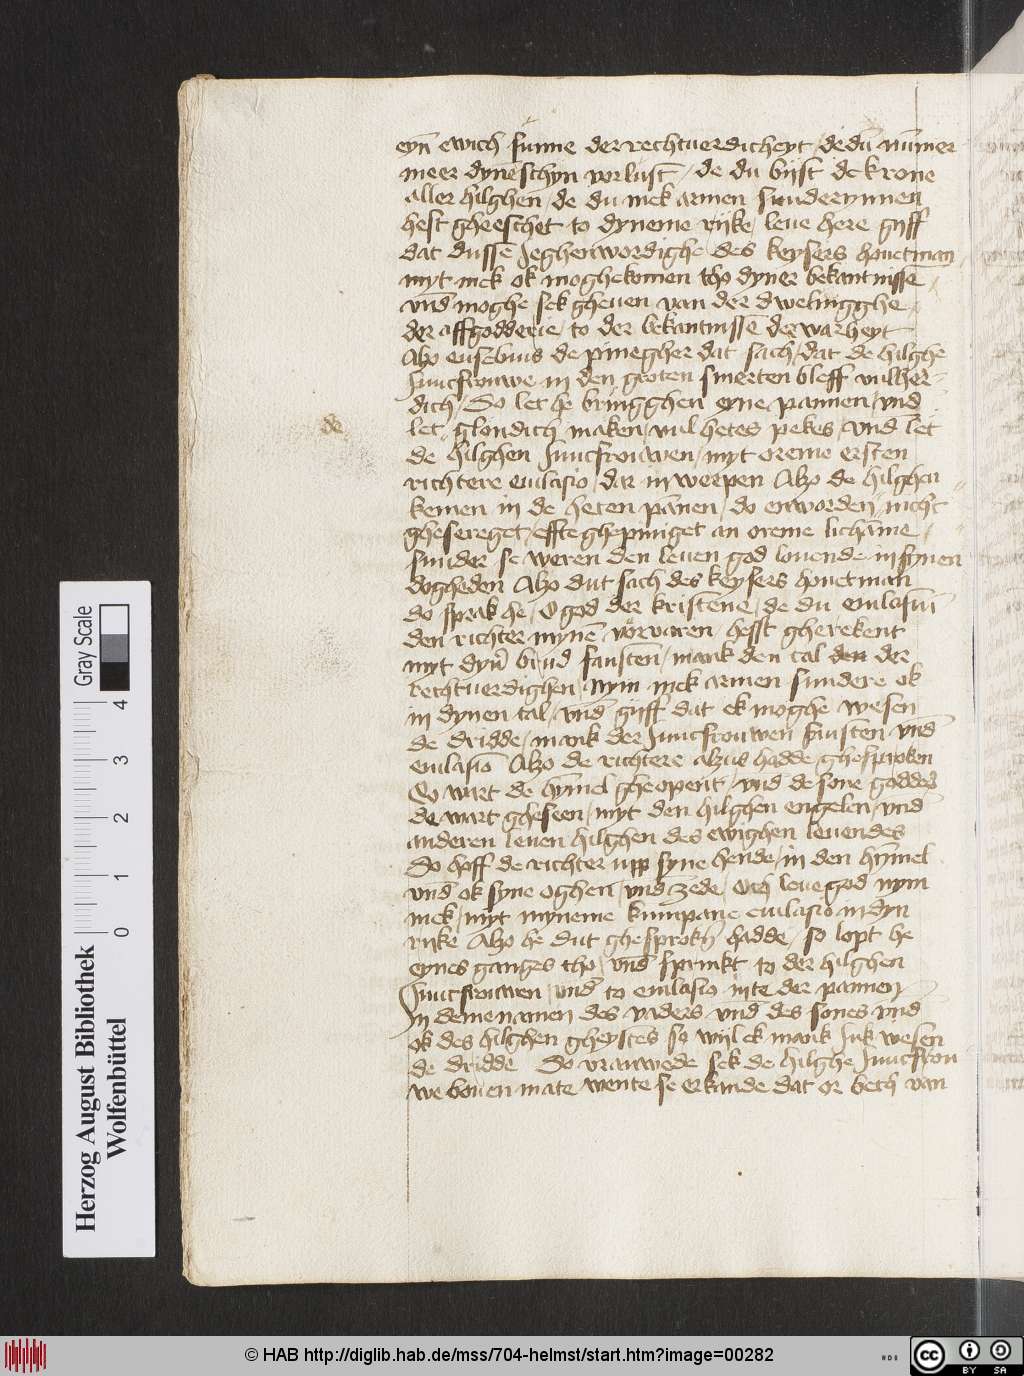 eyn̄ ewich sunne der rechtuerdicheyt / de dū nūmer
meer dynē schyn vorlust / de du bijst de krone
aller hilghen / de du mek armen sunderynnen
hest gheeschet to dyneme rijke / leue here gijff
dat dusse ieghenwordighe des keysers houetman
myt mek ok moghe komen tho dyner bekantnissē /
vnd moghe sek gheuen van der dwelingghe
der affgodderie / to der bekantnissē der warheyt
Alzo eusebius de pinegher dat sach / dat de hilghe
Juncfrouwe in den groten smerten bleff vulher-
dich / Do let he bringghen eyne pannen / vnd
let glondich maken / vul hetes pekes / vnd let
de hilghen Juncfrouwen / myt oreme ersten
richtere euilasio / dar in werpen Alzo de hilghen
kemen in de heten pānen / do enworden / nicht
ghesereget / effte ghepiniget an oreme lichāme /
sunder se weren den leuen god louende in synen
dogheden Alzo dut sach des keysers houetman
do sprak he / O god der kristene / de du euilasiū
den richter mynē voruaren / hefft gherekent
myt dyn̄ brud fausten / mank den tal den der
rechtuerdighen / Nym mek armen sundere ok
in dynen tal / vnd gijff dat ek moghe wesen
de dridde / mank der Juncfrouwen fausten vnd
euilasio Alzo de richtere alzus hadde ghesproken
So wart de hymel gheopent / vnd de sone goddes
de wart gheseen / myt den hilghen engelen / vnd
anderen leuen hilghen des ewighen leuendes
Do hoff de richter upp syne hende / in den hymel
vnd ok syne oghen / vnd zede / Och leue god nym
mek / myt myneme kumpane euilasio in dyn
rijke Alzo he dut ghesprokn̄ hadde / so lopt he
eynes ganges tho / vnd sprinkt to der hilghen
Juncfrouwen / vnd to euilasio in te der pannen
In deme namen des vaders vnd des sones vnd
ok des hilghen gheystes so wijl ek mank juk wesen
de dridde Do vrauwede sek de hilghe Juncfrou
we bouen mate wente se erkande dat or beth van
de
Gray Scale
0 1 2 3 4
Herzog August Bibliothek
Wolfenbüttel
© HAB http://diglib.hab.de/mss/704-helmst/start.htm?image=00282
HAB
cc BY SA